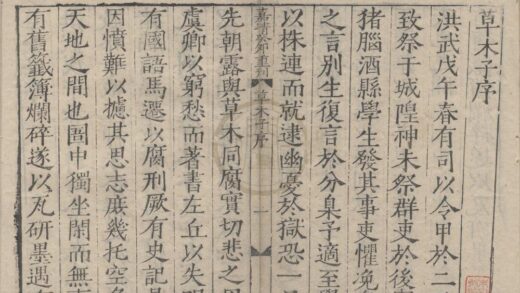 草木子序
洪武戊午春有司以令甲於二
致祭于城隍神未祭群吏於後
猪腦酒縣學生發其事吏懼
之言别生復言於分臬予適至
以株連而就逮幽憂於獄恐一
草木子序
一
先朝露與草木同腐實切悲之
虞卿以窮愁而著書左丘以失
有國語馬遷以腐刑厥有史記
因憤難以攄其思志庶幾托空
天地之間也囹中獨坐閑而無
有舊籤簿爛碎遂以瓦研墨遇